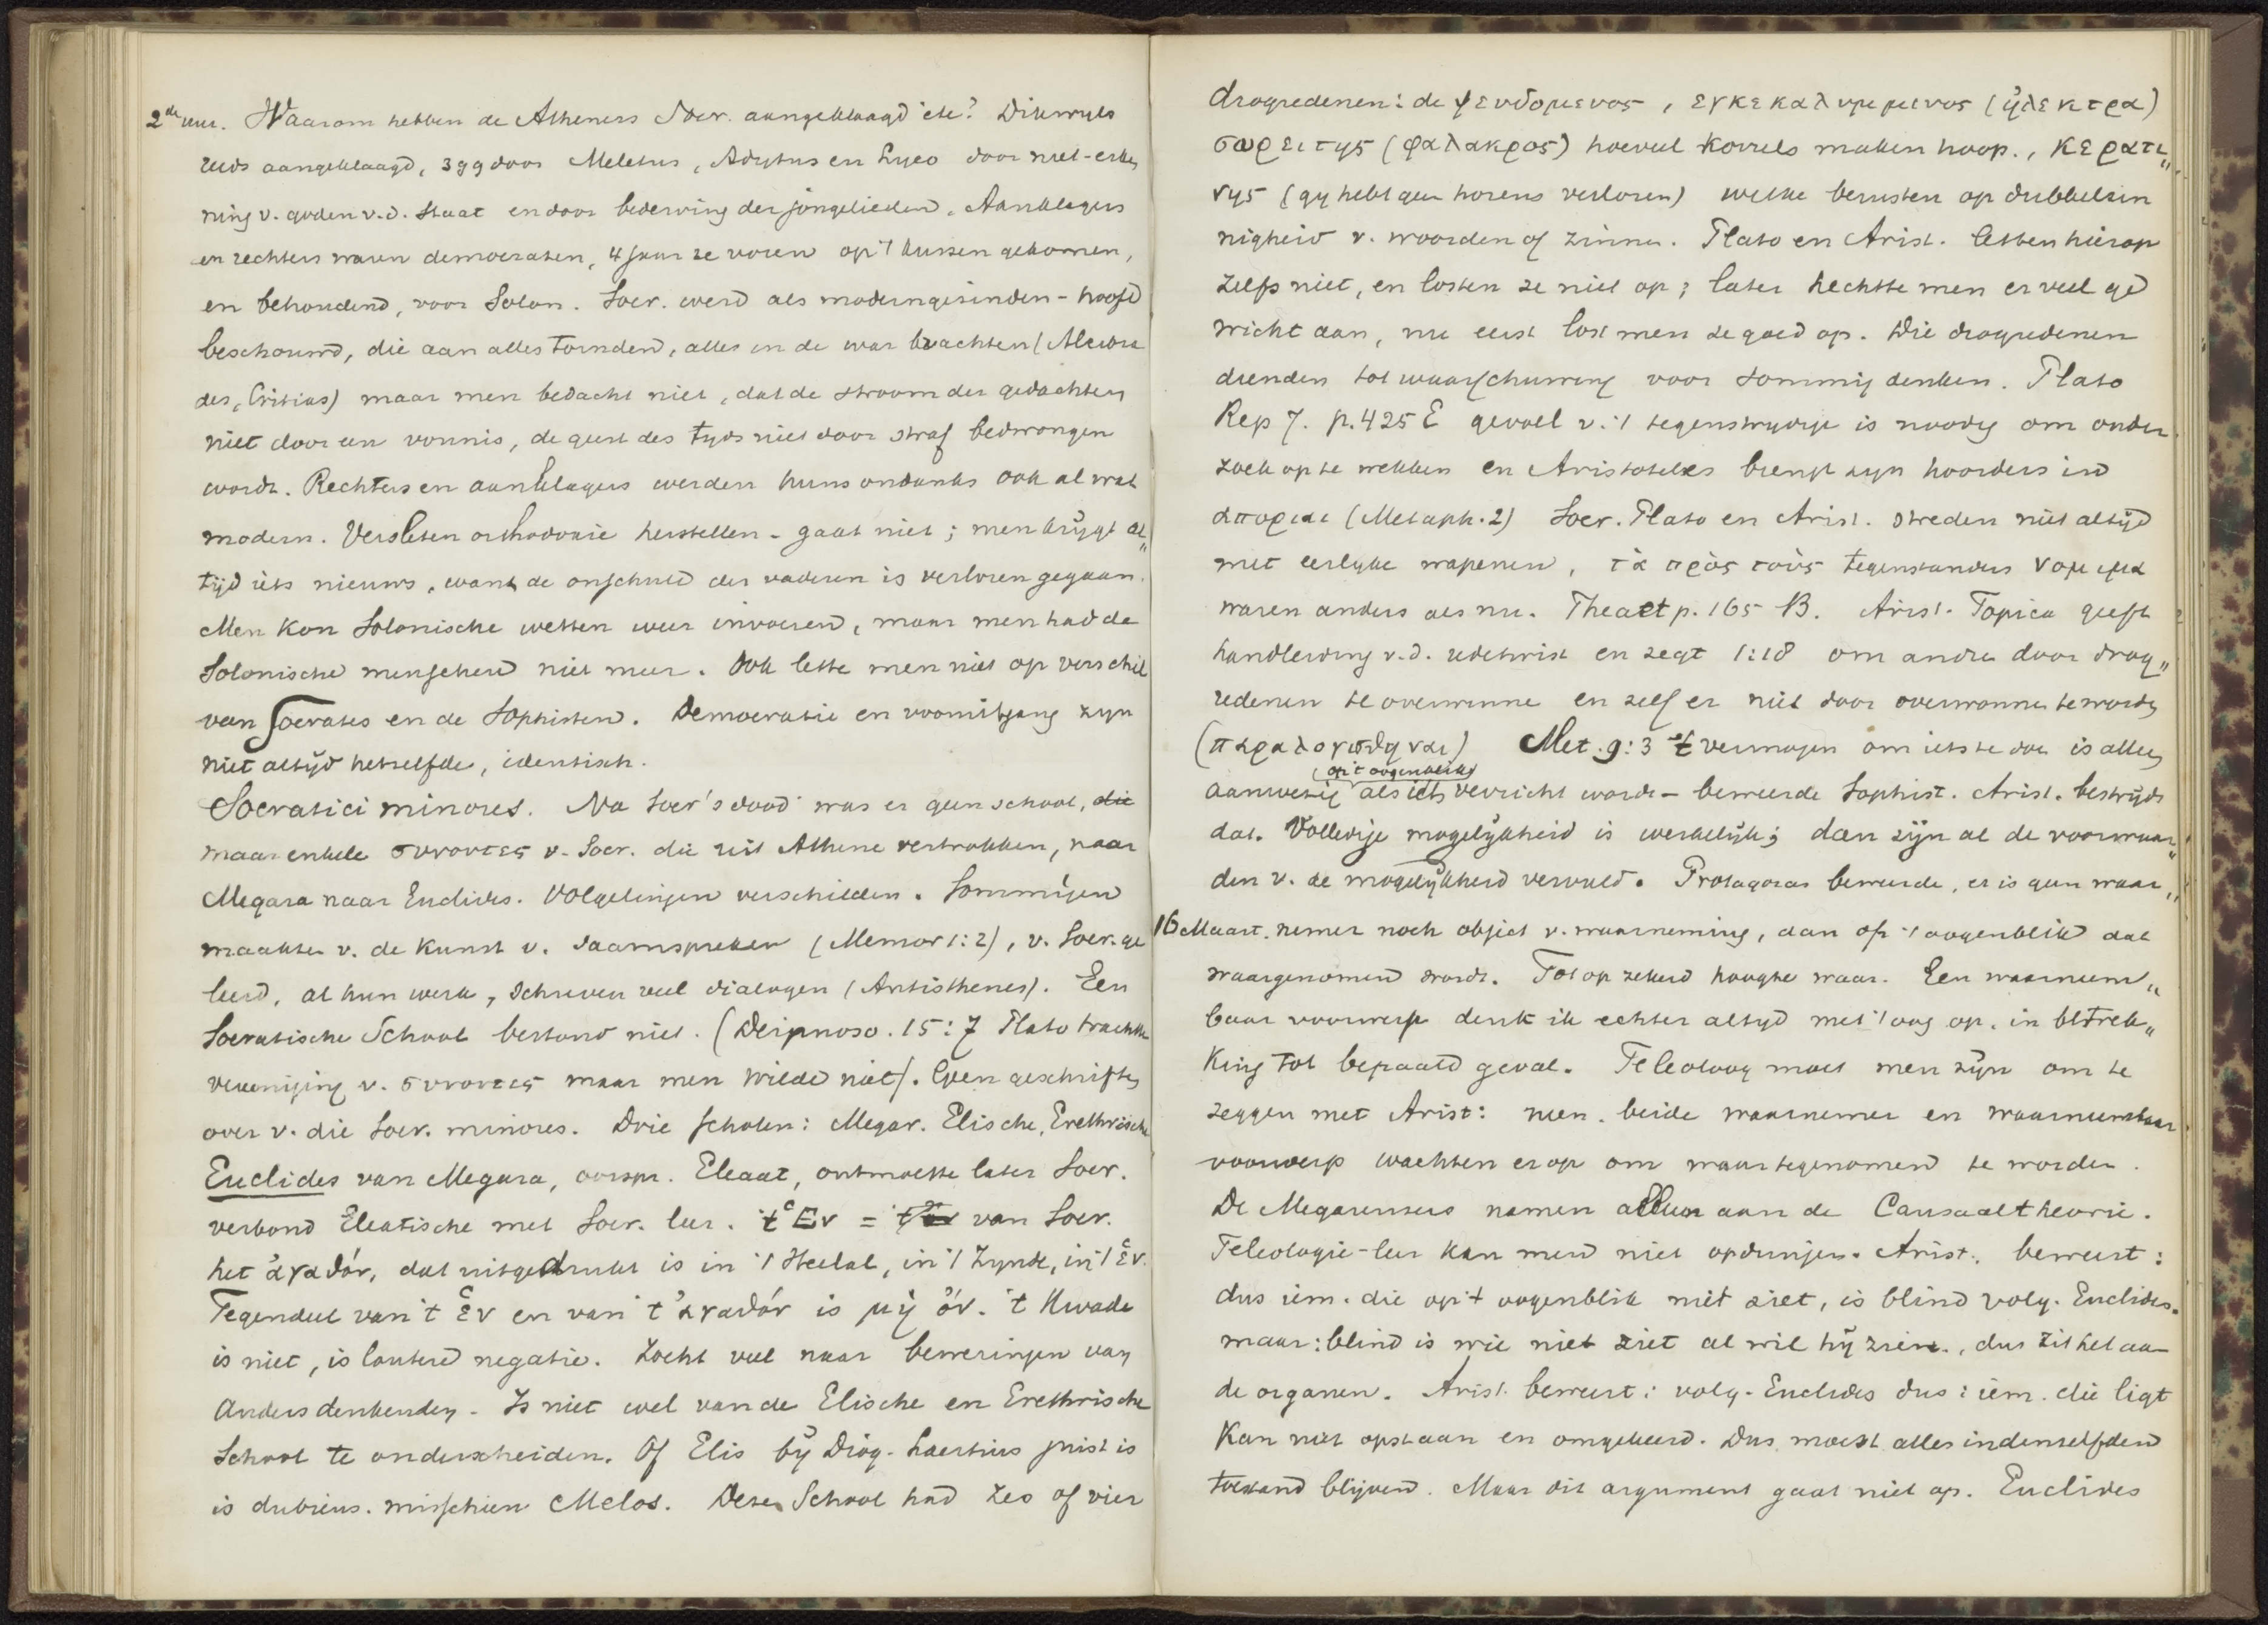 2de uur. Waarom hebben de Atheners Socr. aangeklaagd etc? Dikwyls
reeds aangeklaagd, 399 door Meletus, Adytus en Lyco door niet-erken
ning v. goden v.d. Staat en door bederving der jongelieden. Aanklagers
en rechters waren democraten, 4 jaar te voren op 't kussen gekomen,
en behoudend, voor Solon. Socr. werd als moderngezinden-hoofd
beschouwd, die aan alles tornden, alles in de war brachten (Alcibia
des, Critias) maar men bedacht niet, dat de stroom der gedachten
niet door een vonnis, de geest des tyds niet door straf bedwongen
wordt. Rechters en aanklagers werden huns ondanks ook al wat
modern. Versleten orthodoxie herstellen - gaat niet; men krygt al„
tijd iets nieuws, want de onschuld der vaderen is verloren gegaan.
Men kon Solonische wetten weer invoeren, maar men had de
Solonische menschen niet meer. Ook lette men niet op verschil
van Socrates en de Sophisten. Democratie en vooruitgang zyn
niet altyd hetzelfde, identisch.
Socratici minores. Na Socr's dood was er geen school, die
maar enkele συνοντες v. Socr. die uit Athene vertrokken, naar
Megara naar Euclides. Volgelingen verschilden. Sommigen
maakten v. de kunst v. saamspreken (Memor 1:2), v. Socr. ge
leerd, al hun werk, schreven veel dialogen (Antisthenes). Een
Socratische School bestond niet. (Deipnoso. 15:7 Plato trachtte
vereeniging v. συνοντες maar men wilde niet). Geen geschriften
over v. die Socr. minores. Drie scholen: Megar. Elische, Erethrische
Euclides van Megara, oorspr. Eleaat, ontmoette later Socr.
verbond Eleatische met Socr. leer. 't Ἑν = van Socr.
het ἀγαθόν, dat uitgedrukt is in 't Heelal, in 't Zynde, in 't ἑν.
Tegendeel van 't ἑν en van 't ἀγαθόν is μὴ ὄν. 't Kwade
is niet, is loutere negatie. Zocht veel naar beweringen van
andersdenkenden. Is niet wel van de Elische en Erethrische
School te onderscheiden. Of Elis bÿ Diog. Laertius juist is
is dubieus. misschien Melos. Deze School had zes of vier
drogredenen: de ψευδομενος, εγκεκαλυμμενος (ἠλεκτρα)
σωρειτης (φαλακρος) hoeveel korrels maken hoop., κερατι„
νης (gy hebt geen horens verloren) welke berusten op dubbelzin
nigheid v. woorden of zinnen. Plato en Arist. letten hierop
zelfs niet, en losten ze niet op; later hechtte men er veel ge
wicht aan, nu eerst lost men ze goed op. Die drogredenen
dienden tot waarschuwing voor sommig denken. Plato
Rep 7. p.425 E gevoel v. 't tegenstrydige is noodig om onder
zoek op te wekken en Aristoteles brengt zyn hoorders in
απορίαι (Metaph. 2) Socr. Plato en Arist. streden niet altijd
met eerlyke wapenen, τὰ πρὸς τοὺς tegenstanders νομιμα
waren anders als nu. Theaet p. 165 B. Arist. Topica geeft
handleiding v.d. redetwist en zegt 1:18 om andren door drog„
redenen te overwinnen en zelf er niet door overwonnen te worden
(παραλογισθηναι) Met. 9:3 't vermogen om iets te doen is alleen
aanwezig (op 't oogenblik) als iets verricht wordt - beweerde Sophist. Arist. bestrijdt
dat. Volledige mogelijkheid is werkelijk; dan zijn al de voorwaar„
den v. de mogelijkheid vervuld. Protagoras beweerde, er is geen waar„
16 Maart. nemer noch object v. waarneming, dan op 't oogenblik dat
waargenomen wordt. Tot op zekere hoogte waar. Een waarneem„
baar voorwerp denk ik echter altyd met 't oog op, in betrek„
king tot bepaald geval. Teleoloog moet men zijn om te
zeggen met Arist: neen. beide waarnemer en waarneembaar
voorwerp wachten erop om waartegenomen te worden.
De Megarensers namen alleen aan de Causaaltheorie.
Teleologie-leer kan men niet opdringen. Arist. beweert:
dus iem. die op 't oogenblik niet ziet, is blind volg. Euclides.
maar: blind is wie niet ziet al wil hij zien., dus zit het aan
de organen. Arist. beweert: volg. Euclides dus: iem. die ligt
kan niet opstaan en omgekeerd. Dus moest alles in denzelfden
toestand blijven. Maar dit argument gaat niet op. Euclides